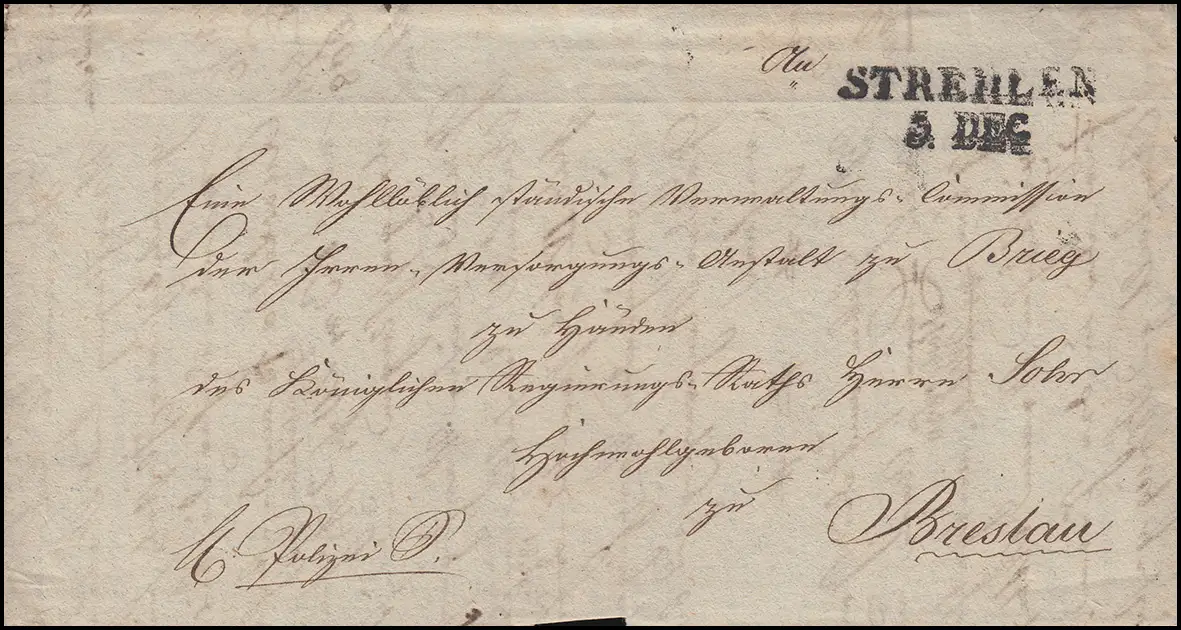 An
STREHLEN
5. DEC
Eine Wohllöblich ständische Verwaltungs-Commission
der Irren-Versorgungs-Anstalt zu Brieg
zu Händen
des Königlichen Regierungs-Raths Herrn Sohr
Hochwohlgeboren
zu
Breslau
Polizei S.